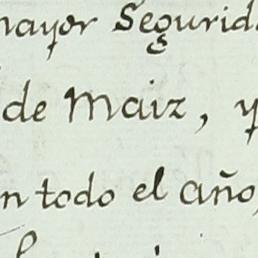 mayor Segurid
de Maiz, y
n todo el año,